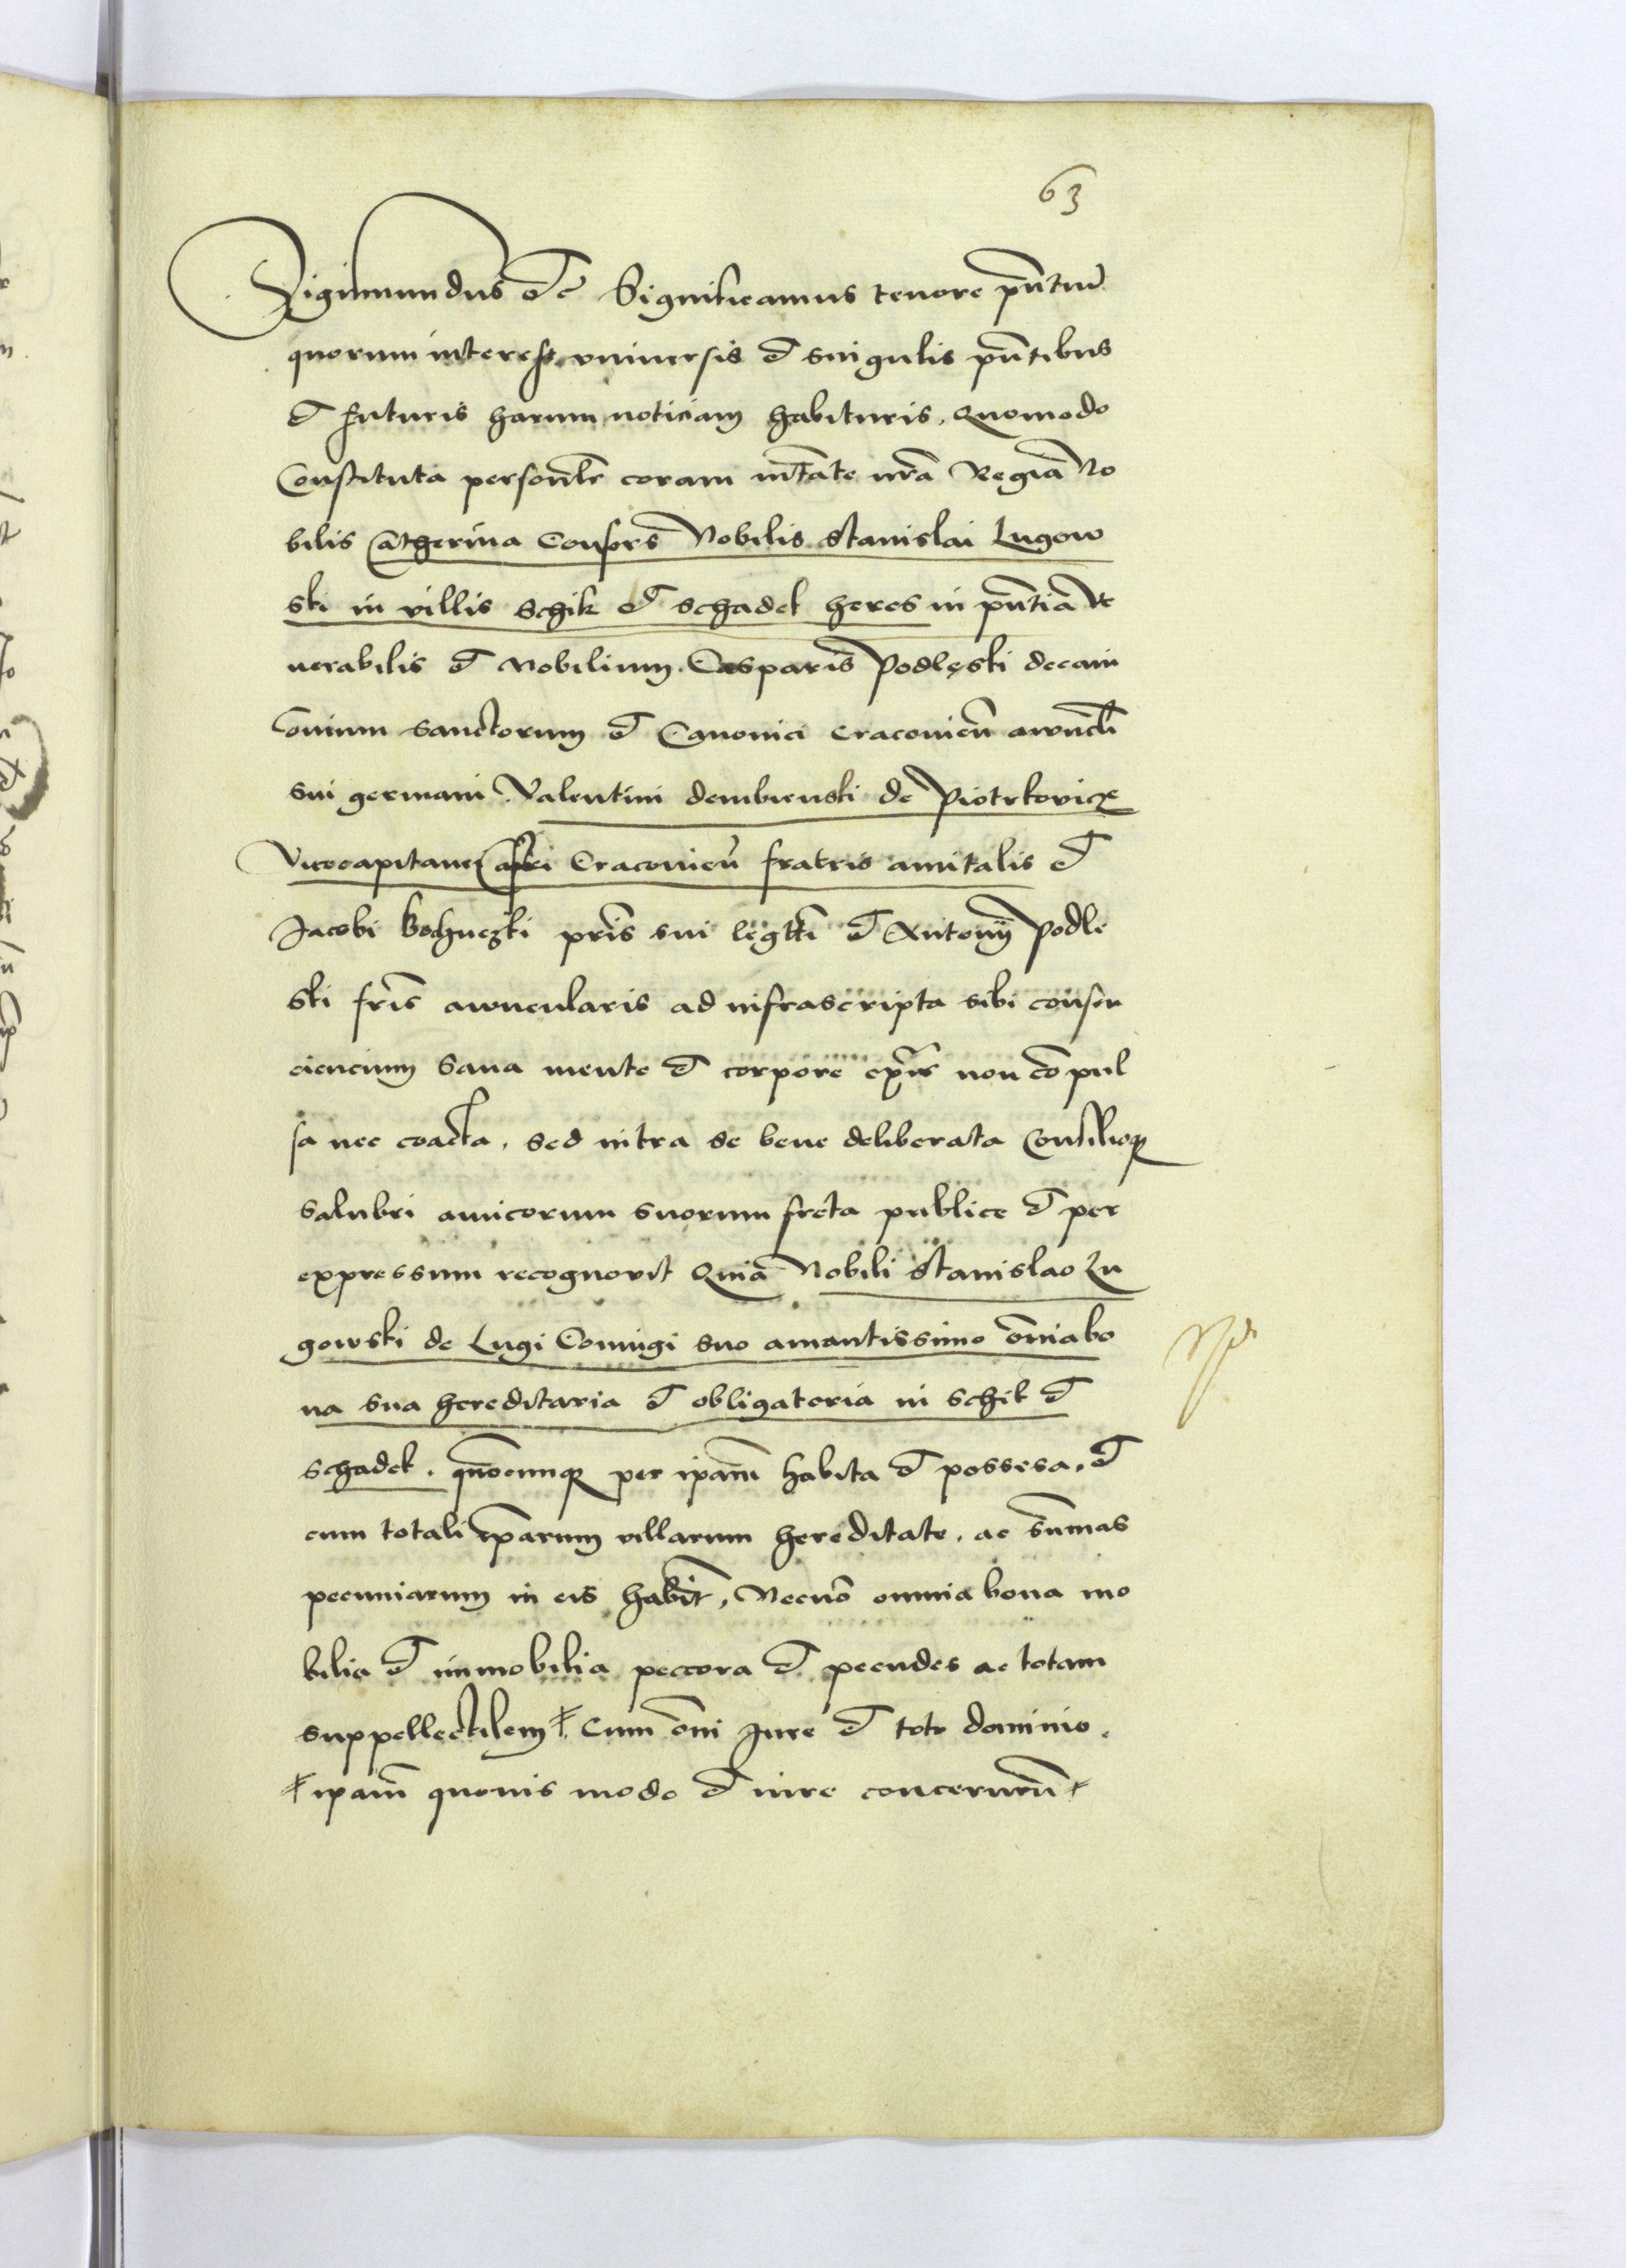 63
Sigismundus etc Significamus tenore pn̄tium
quorum interest vniuersis et singulis pn̄tibus
et futuris harum noticiam habituris. Quomodo
Constituta personl̄r coram mtāte nrā Regia No
bilis Catherina Consors Nobilis Stanislai Lugow
ski in villis Schik et Schadek heres in pn̄tia ve
nerabilis et Nobilium. Casparis Podleski decani
Omnium Sanctorum et Canonici Cracovien̄ awncli
sui germani Valentini dembienski de Piotrkovicze
Vicecapitanei Cracovien̄ fratris amitalis et
Jacobi Bochnezki pris̄ sui et Antonij Podle
ski fris̄ awncularis ad infrascripta sibi consen
ciencium sana mente et corpore exn̄s non com̄pul
sa nec coacta. sed intra se bene deliberata Consilioque
salubri amicorum suorum freta publice et per
expressum recognovit Quia Nobili Stanislao Lu
gowski de Lugi Coniugi suo amantissimo om̄ia bo
na sua hereditaria et obligatoria in Schik et
Schadek. quocunque per ipam̄ habita et possesa. et
cum totali ip̄arum villarum hereditate. ac sum̄mas
pecuniarum in eis habit̄. Necno͞ omnia bona mo
bilia et immobilia peccora et pecudes ac totam
suppellectilem ⸸ Cum om̄i Jure et toto dominio.
⸸ ipam̄ quouis modo et iure concernen̄ ⸸